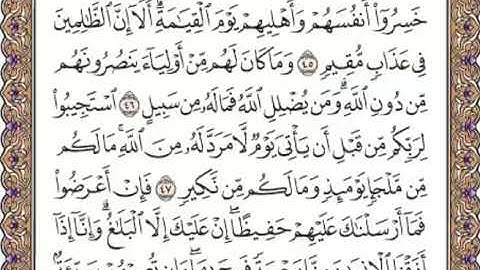 خَسِرُوٓا۟ أَنفُسَهُمْ وَأَهْلِيهِمْ يَوْمَ ٱلْقِيَٰمَةِ ۗ أَلَآ إِنَّ ٱلظَّٰلِمِينَ
فِى عَذَابٍ مُّقِيمٍ ٤٥ وَمَا كَانَ لَهُم مِّنْ أَوْلِيَآءَ يَنصُرُونَهُم
مِّن دُونِ ٱللَّهِ ۗ وَمَن يُضْلِلِ ٱللَّهُ فَمَا لَهُۥ مِن سَبِيلٍ ٤٦ ٱسْتَجِيبُوا۟
لِرَبِّكُم مِّن قَبْلِ أَن يَأْتِىَ يَوْمٌ لَّا مَرَدَّ لَهُۥ مِنَ ٱللَّهِ ۚ مَا لَكُم
مِّن مَّلْجَإٍ يَوْمَئِذٍ وَمَا لَكُم مِّن نَّكِيرٍ ٤٧ فَإِنْ أَعْرَضُوا۟
فَمَآ أَرْسَلْنَٰكَ عَلَيْهِمْ حَفِيظًا ۖ إِنْ عَلَيْكَ إِلَّا ٱلْبَلَٰغُ ۗ وَإِنَّآ إِذَآ